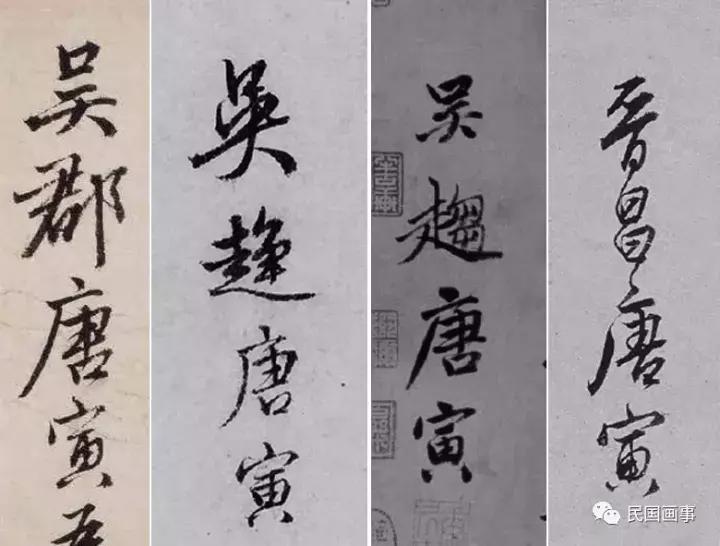 吴郡唐寅
吴趋唐寅
吴趨唐寅
晋昌唐寅
民国画事